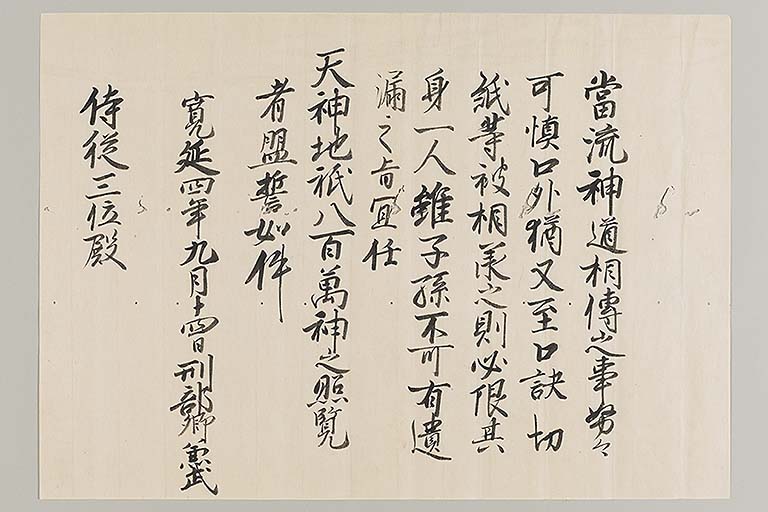 當流神道相傳之事努々
可慎口外猶又至口訣切
紙等被相羕之則必限其
身一人雖子孫不可有遺
漏之旨冝任
天神地祇八百萬神之照覧
者盟誓如件
寛延四年九月十四日刑部卿
侍從三位殿